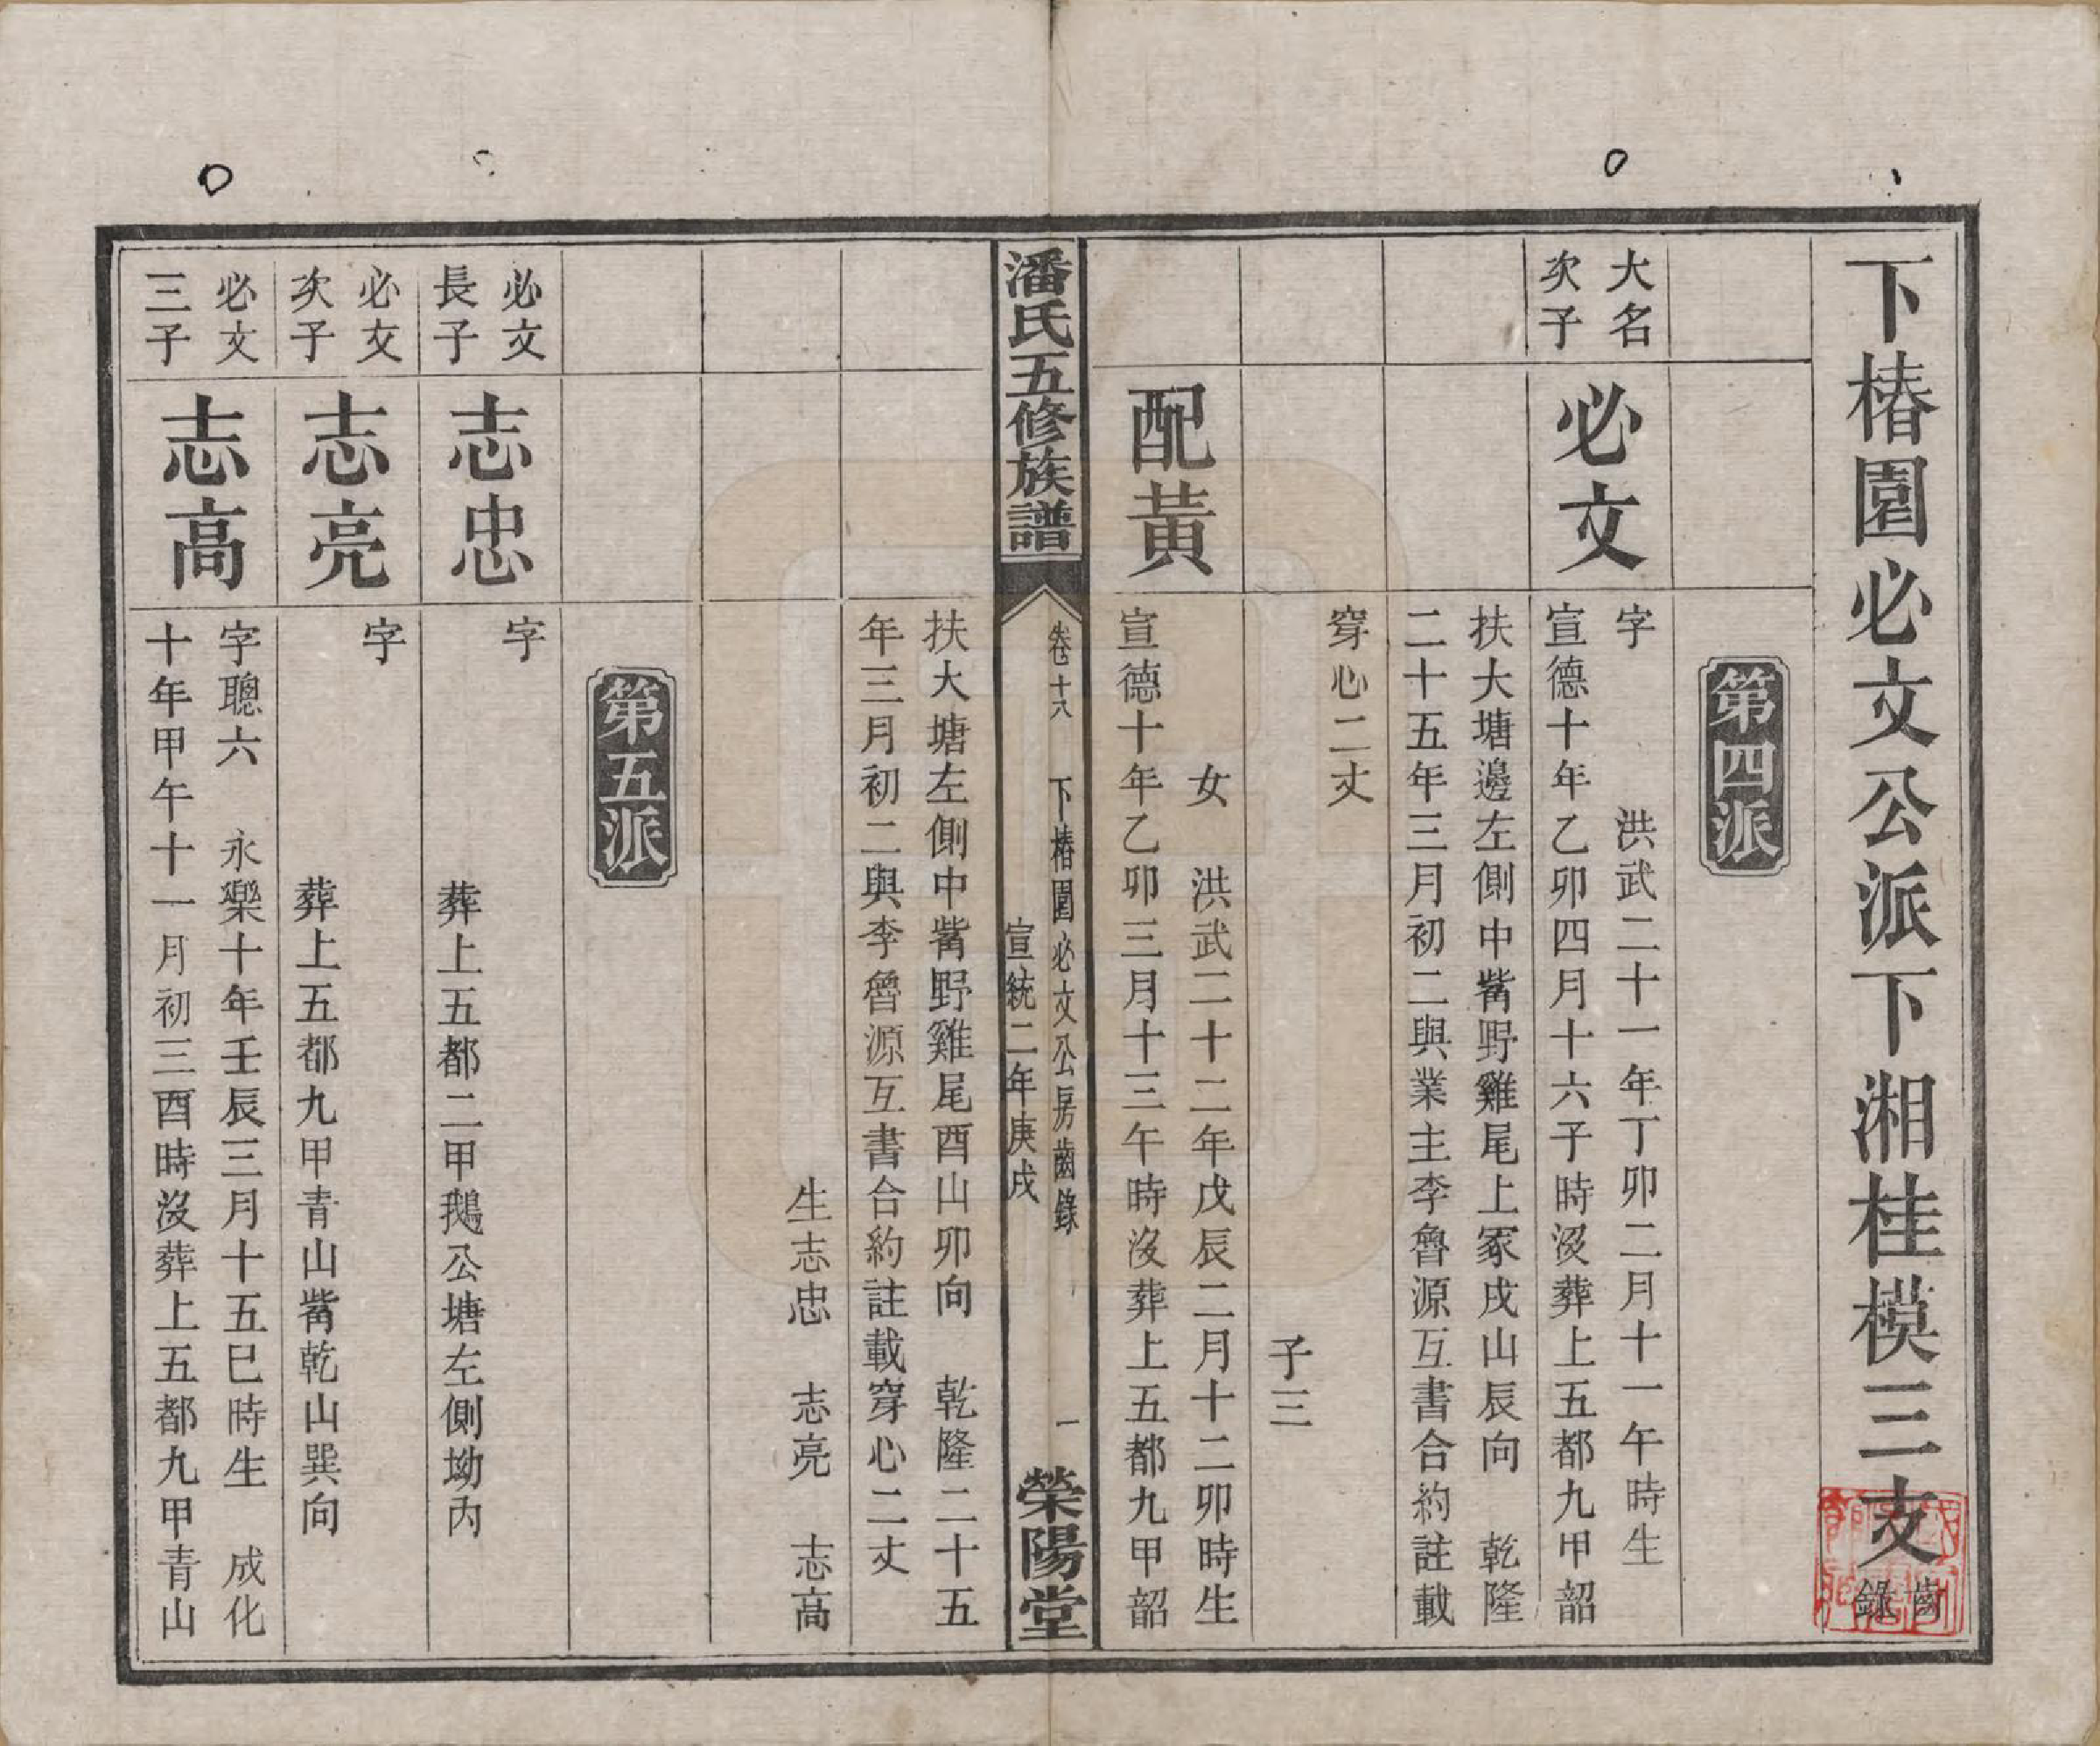 下椿園必文公派下湘桂模三支齒錄
第四派
大名次子
必文
字　洪武二十一年丁卯二月十一午時生
宣德十年乙卯四月十六子時沒葬上五都九甲韶
扶大塘邊左側中觜野雞尾上冢戌山辰向　乾隆
二十五年三月初二與業主李魯源互書合約註載
穿心二丈
子三
配黃
女　洪武二十二年戊辰二月十二卯時生
宣德十年乙卯三月十三午時沒葬上五都九甲韶
潘氏五修族譜
卷十八　下椿園必文公房齒錄　一
宣統二年庚戌
榮陽堂
扶大塘左側中觜野雞尾酉山卯向　乾隆二十五
年三月初二與李魯源互書合約註載穿心二丈
生志忠　志亮　志高
第五派
必文長子
志忠
字
葬上五都二甲鵝公塘左側坳內
必文次子
志亮
字
葬上五都九甲青山觜乾山巽向
必文三子
志高
字聰六　永樂十年壬辰三月十五巳時生　成化
十年甲午十一月初三酉時沒葬上五都九甲青山